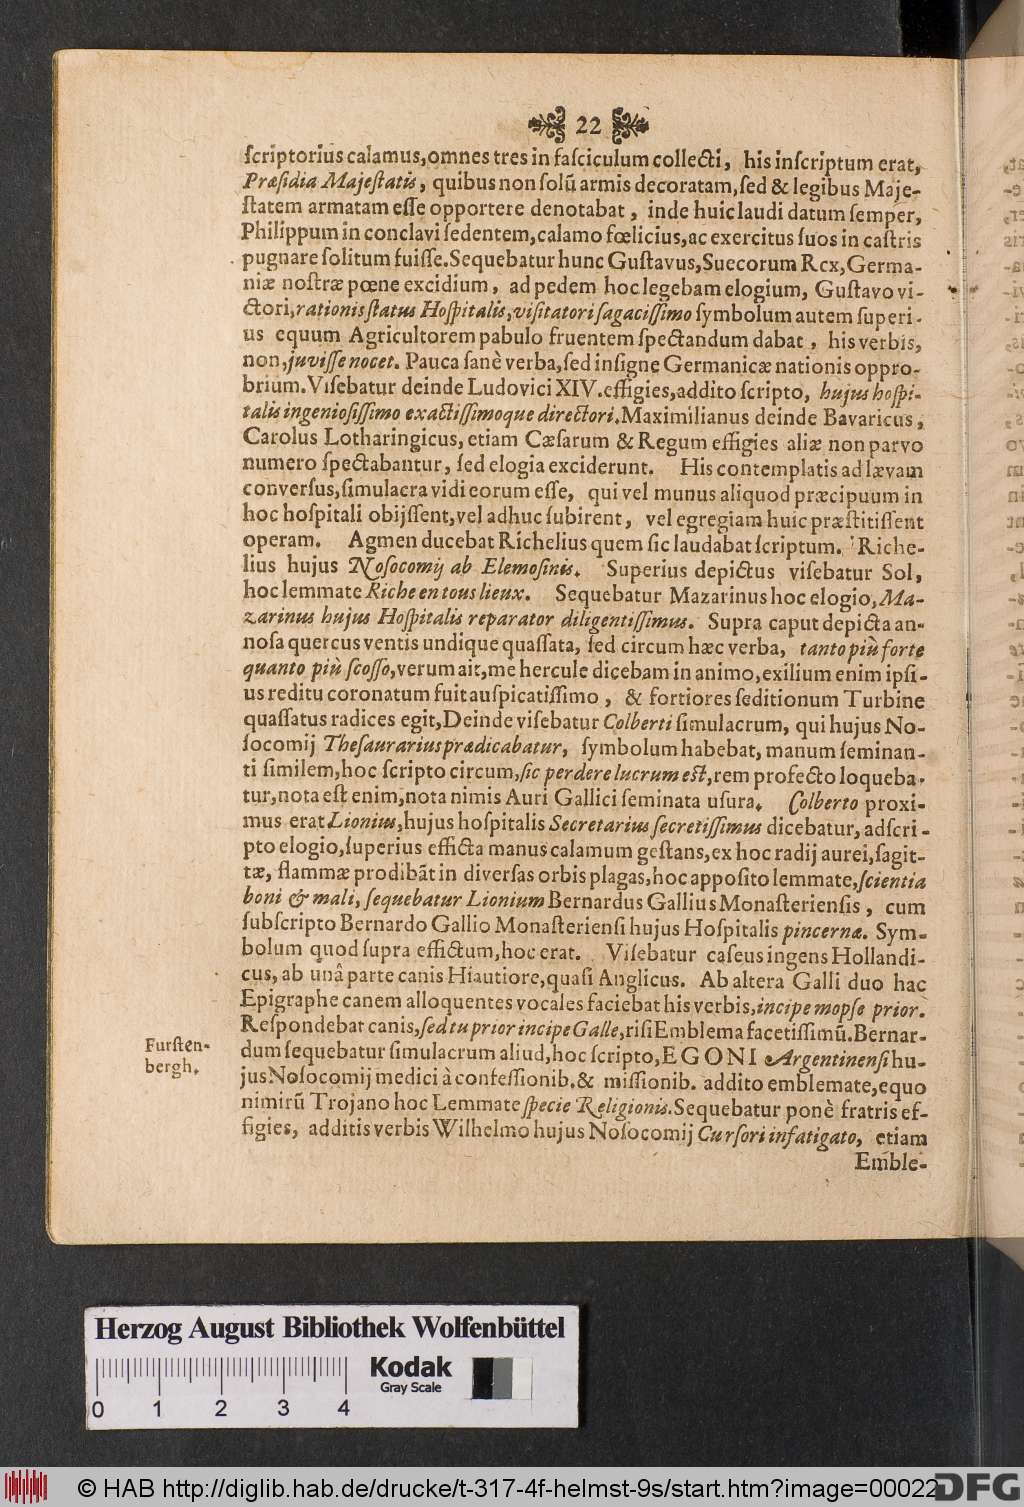 22
ſcriptorius calamus, omnes tres in faſciculum collecti, his inſcriptum erat,
Præſidia Majeſtatis, quibus non ſolũ armis decoratam, ſed & legibus Maje-
ſtatem armatam eſſe opportere denotabat, inde huic laudi datum ſemper,
Philippum in conclavi ſedentem, calamo fœlicius, ac exercitus ſuos in caſtris
pugnare ſolitum fuiſſe. Sequebatur hunc Guſtavus, Suecorum Rex, Germa-
niæ noſtræ pœne excidium, ad pedem hoc legebam elogium, Guſtavo vi-
ctori, rationis ſtatus Hoſpitalis, viſitatori ſagaciſſimo ſymbolum autem ſuperi-
us equum Agricultorem pabulo fruentem ſpectandum dabat, his verbis,
non, juviſſe nocet. Pauca ſanè verba, ſed inſigne Germanicæ nationis oppro-
brium. Viſebatur deinde Ludovici XIV. effigies, addito ſcripto, hujus hoſpi-
talis ingenioſiſſimo exactiſſimoque directori. Maximilianus deinde Bavaricus,
Carolus Lotharingicus, etiam Cæſarum & Regum effigies aliæ non parvo
numero ſpectabantur, ſed elogia exciderunt. His contemplatis ad lævam
converſus, ſimulacra vidi eorum eſſe, qui vel munus aliquod præcipuum in
hoc hoſpitali obijſſent, vel adhuc ſubirent, vel egregiam huic præſtitiſſent
operam. Agmen ducebat Richelius quem ſic laudabat ſcriptum. Riche-
lius hujus Noſocomij ab Elemoſinis. Superius depictus viſebatur Sol,
hoc lemmate Riche en tous lieux. Sequebatur Mazarinus hoc elogio, Ma-
zarinus hujus Hoſpitalis reparator diligentiſſimus. Supra caput depicta an-
noſa quercus ventis undique quaſſata, ſed circum hæc verba, tanto più forte
quanto più ſcoſſo, verum ait, me hercule dicebam in animo, exilium enim ipſi-
us reditu coronatum fuit auſpicatiſſimo, & fortiores ſeditionum Turbine
quaſſatus radices egit, Deinde viſebatur Colberti ſimulacrum, qui hujus No-
ſocomij Theſaurarius prædicabatur, ſymbolum habebat, manum ſeminan-
ti ſimilem, hoc ſcripto circum, ſic perdere lucrum eſt, rem profecto loqueba-
tur, nota eſt enim, nota nimis Auri Gallici ſeminata uſura. Colberto proxi-
mus erat Lionius, hujus hoſpitalis Secretarius ſecretiſſimus dicebatur, adſcri-
pto elogio, ſuperius efficta manus calamum geſtans, ex hoc radij aurei, ſagit-
tæ, flammæ prodibãt in diverſas orbis plagas, hoc appoſito lemmate, ſcientia
boni & mali, ſequebatur Lionium Bernardus Gallius Monaſterienſis, cum
ſubſcripto Bernardo Gallio Monaſterienſi hujus Hoſpitalis pincernæ. Sym-
bolum quod ſupra effictum, hoc erat. Viſebatur caſeus ingens Hollandi-
cus, ab unâ parte canis Hiautiore, quaſi Anglicus. Ab altera Galli duo hac
Epigraphe canem alloquentes vocales faciebat his verbis, incipe mopſe prior.
Reſpondebat canis, ſed tu prior incipe Galle, riſi Emblema facetiſſimũ. Bernar-
dum ſequebatur ſimulacrum aliud, hoc ſcripto, EGONI Argentinenſi hu-
jus Noſocomij medici à confeſſionib. & miſſionib. addito emblemate, equo
nimirũ Trojano hoc Lemmate ſpecie Religionis. Sequebatur ponè fratris ef-
figies, additis verbis Wilhelmo hujus Noſocomij Curſori infatigato, etiam
Emble-
Furſten-
bergh.
Herzog August Bibliothek Wolfenbüttel
Kodak
Gray Scale
0 1 2 3 4
© HAB http://diglib.hab.de/drucke/t-317-4f-helmst-9s/start.htm?image=00022
DFG